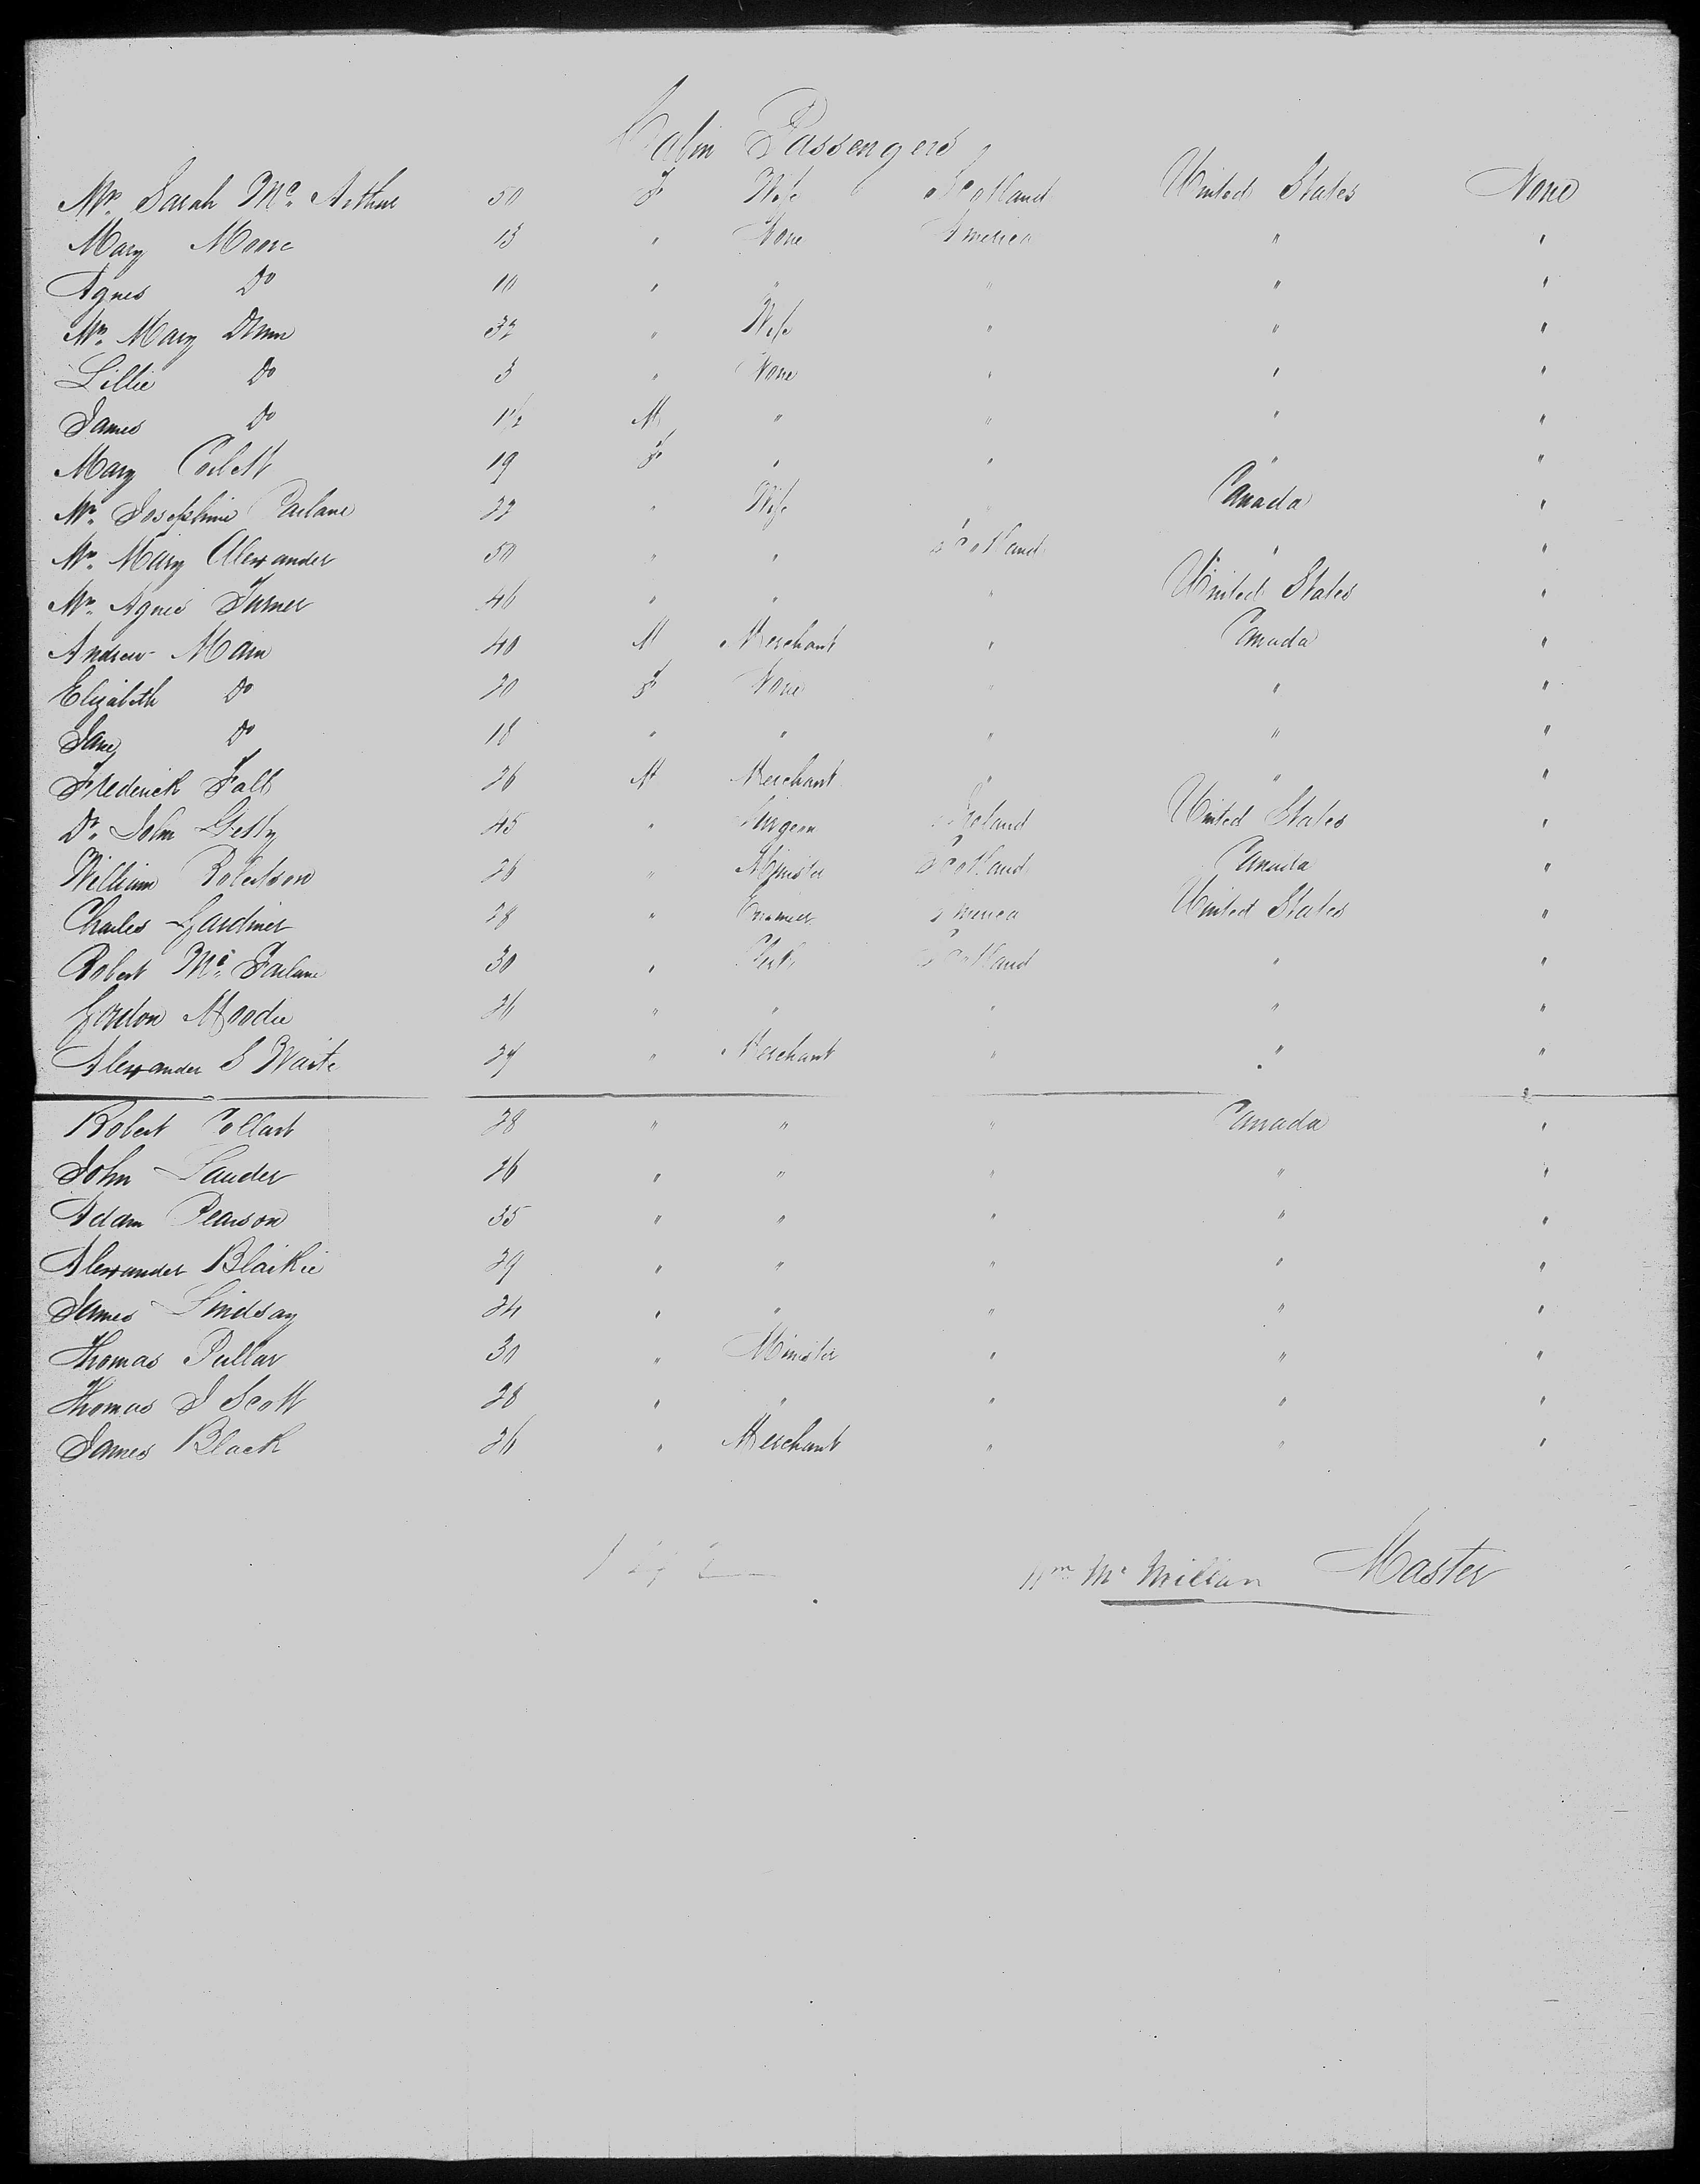 Cabin Passengers
Mrs. Sarah Mc. Arthur 50 F Wife Scotland United States None
Mary Moore 13 " None America " "
Agnes Do 10 " " " " "
Mrs. Mary Dunn 32 " Wife " " "
Lillie Do 3 " None " " "
James Do 1 1/2 M " " " "
Mary Corbett 19 F " " " "
Mrs. Josephine Parlane 22 " Wife " Canada "
Mrs. Mary Alexander 50 " " Scotland " "
Mrs. Agnes Turner 46 " " " United States "
Andrew Main 40 M Merchant " Canada "
Elizabeth Do 20 F None " " "
Jane Do 18 " " " " "
Frederick Falls 26 M Merchant " " "
Dr. John Getty 45 " Surgeon Ireland United States "
William Robertson 26 " Minister Scotland Canada "
Charles Gardiner 28 " America United States "
Robert Mc. Farlane 30 " Clerk Scotland " "
Gordon Moodie 26 " " " " "
Alexander S Waite 24 " Merchant " " "
Robert Collart 28 " " " Canada "
John Lauder 26 " " " " "
Adam Pearson 35 " " " " "
Alexander Blaikie 29 " " " " "
James Lindsay 24 " " " " "
Thomas Pullar 30 " Minister " " "
Thomas J Scott 28 " " " " "
James Black 26 " Merchant " " "
Wm Mc Millan Master